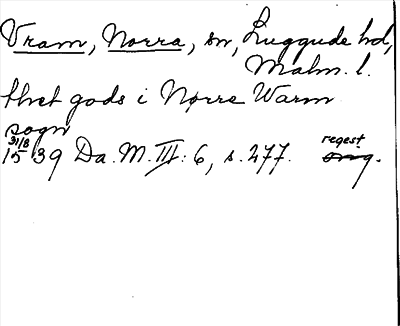 Vram, Norra, sn, Luggude hd,
Malm. l.
thet gods i Nørre Warm
sogn
31/8
1539 Da. M. III: 6, s. 277. regest
orig.